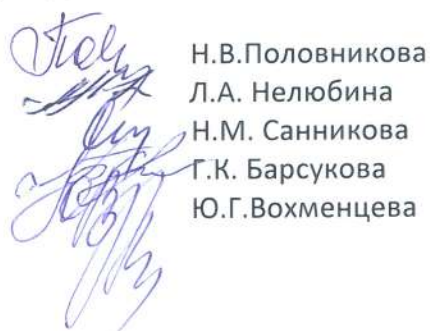 Н.В.Половникова
Л.А. Нелюбина
Н.М. Санникова
Г.К. Барсукова
Ю.Г.Вохменцева